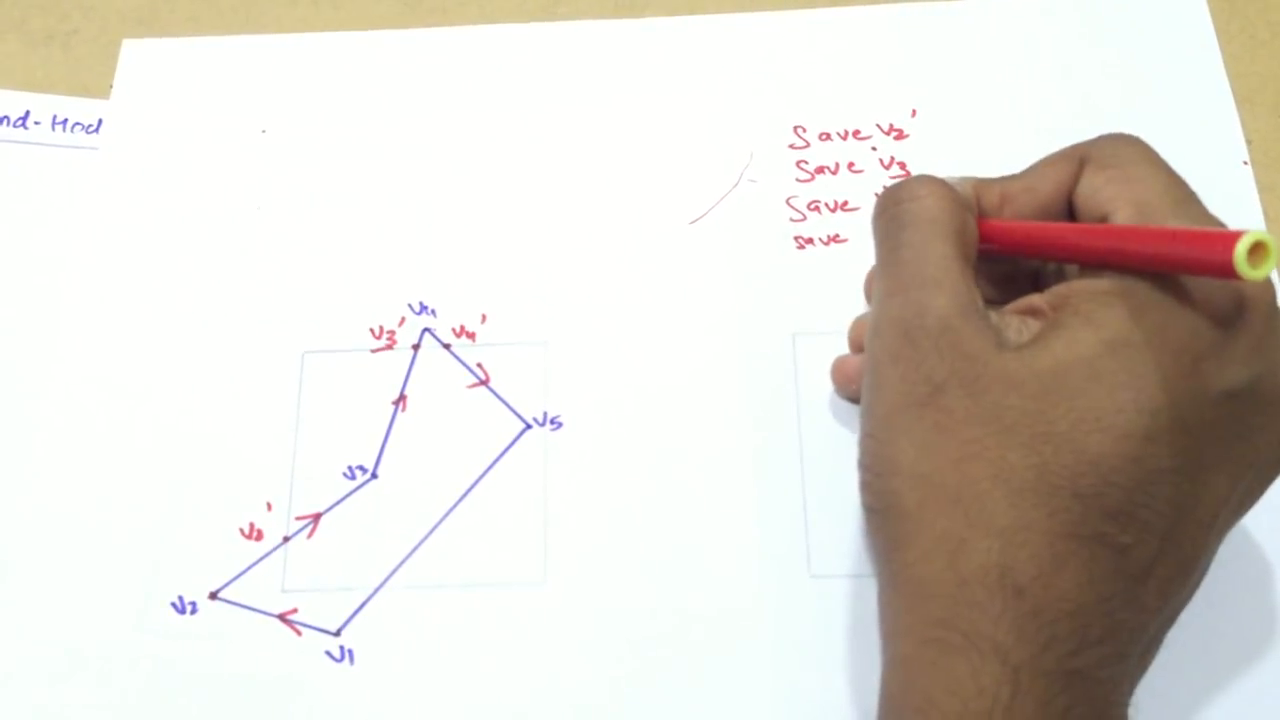 nd-Hod
Save V2'
Save V3
Save
save
V4
V3'
V4'
V5
V3
V2'
V2
V1